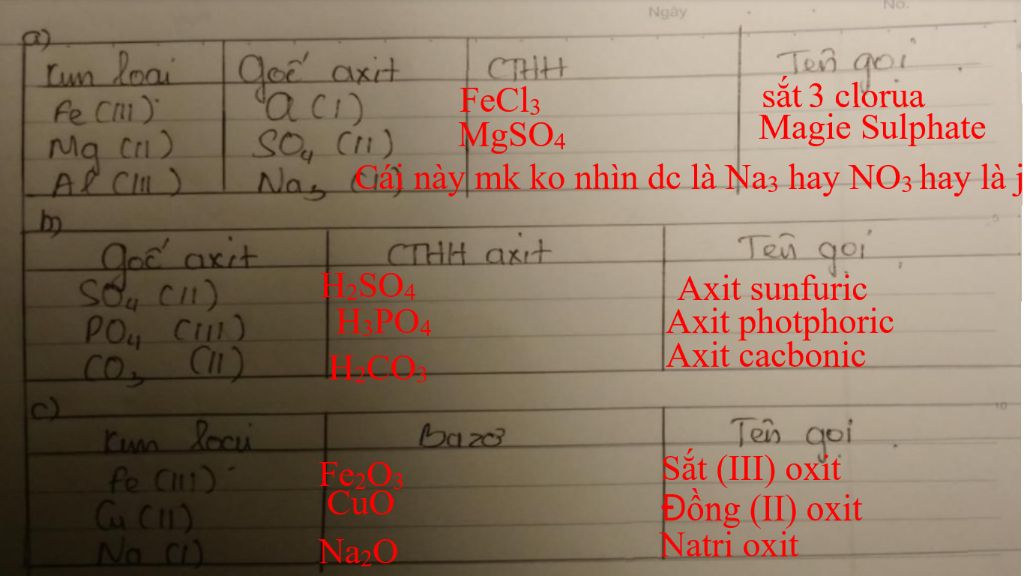 Ngày
No.
a)
Kim loại Gốc axit CTHH Tên gọi
Fe (III) Cl (I) FeCl₃ sắt 3 clorua
Mg (II) SO₄ (II) MgSO₄ Magie Sulphate
Al (III) Na₃ Cái này mk ko nhìn dc là Na₃ hay NO₃ hay là j
b)
Gốc axit CTHH axit Tên gọi
SO₄ (II) H₂SO₄ Axit sunfuric
PO₄ (III) H₃PO₄ Axit photphoric
CO₃ (II) H₂CO₃ Axit cacbonic
c)
Kim loại Bazơ Tên gọi
Fe (III) Fe₂O₃ Sắt (III) oxit
Cu (II) CuO Đồng (II) oxit
Na (I) Na₂O Natri oxit
10